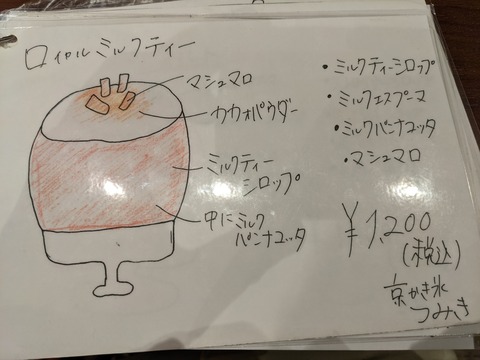 ロイヤルミルクティー
マシュマロ
カカオパウダー
ミルクティー
シロップ
中にミルク
パンナコッタ
・ミルクティーシロップ
・ミルクエスプーマ
・ミルクパンナコッタ
・マシュマロ
¥1,200
(税込)
京かき氷
つみき